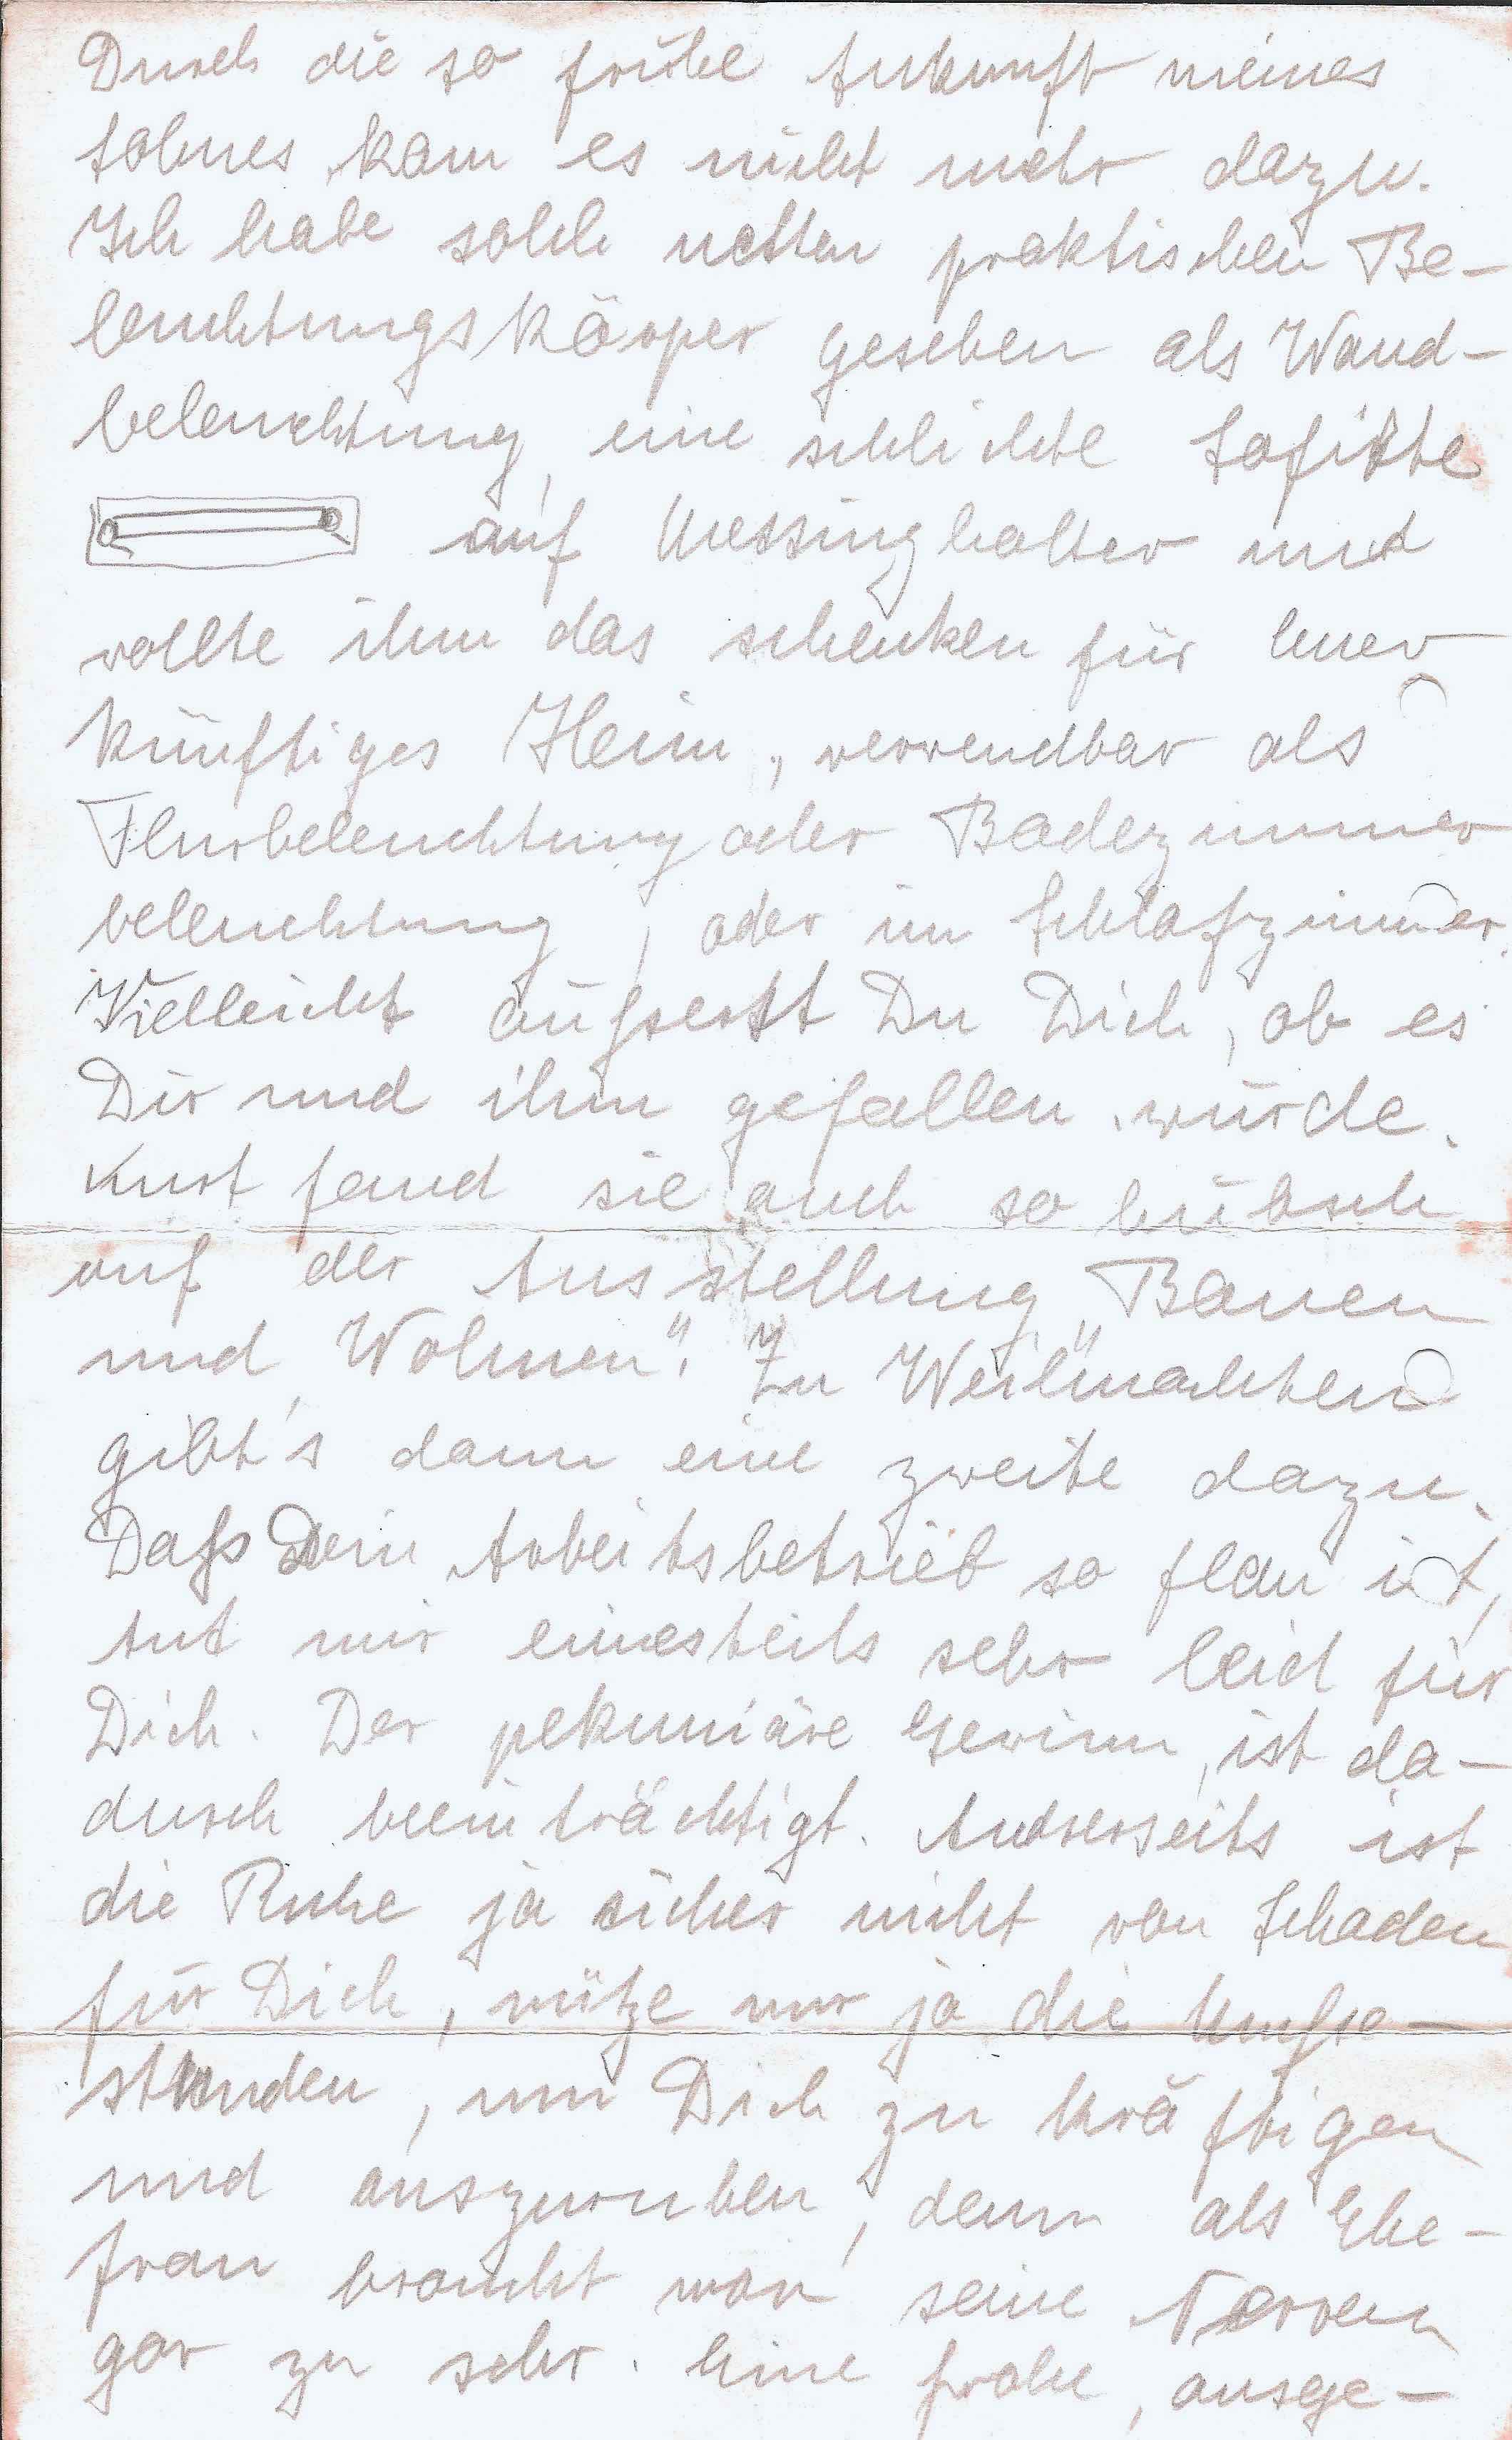 Durch die so frühe Ankunft meines
Sohnes kam es nicht mehr dazu.
Ich habe solch netten praktischen Be-
leuchtungskörper gesehen als Wand-
beleuchtung, eine schlichte Sofitte
auf Messinghalter und
wollte ihm das schenken für Euer
künftiges Heim, verwendbar als
Flurbeleuchtung oder Badezimmer
beleuchtung, oder im Schlafzimmer.
Vielleicht äußerst Du Dich, ob es
Dir und ihm gefallen würde.
Kurt fand sie auch so hübsch
auf der Ausstellung „Bauen
und Wohnen". Zu Weihnachten
gibt's dann eine zweite dazu.
Daß Dein Arbeitsbetrieb so flau ist,
tut mir einesteils sehr leid für
Dich. Der pekuniäre Gewinn, ist da-
durch beeinträchtigt. Andrerseits ist
die Ruhe ja sicher nicht von Schaden
für Dich, nütze nur ja die Muße-
stunden, um Dich zu kräftigen
und auszuruhen, denn als Ehe-
frau braucht man seine Nerven
gar zu sehr. Eine frohe, ausge-